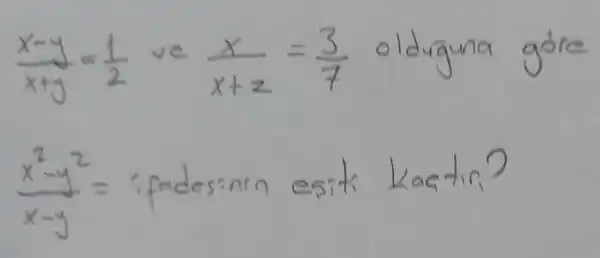 x-y/x+y = 1/2 ve x/x+z = 3/7 olduğuna göre
x²-y²/x-y = ifadesinin eşiti kaçtır?